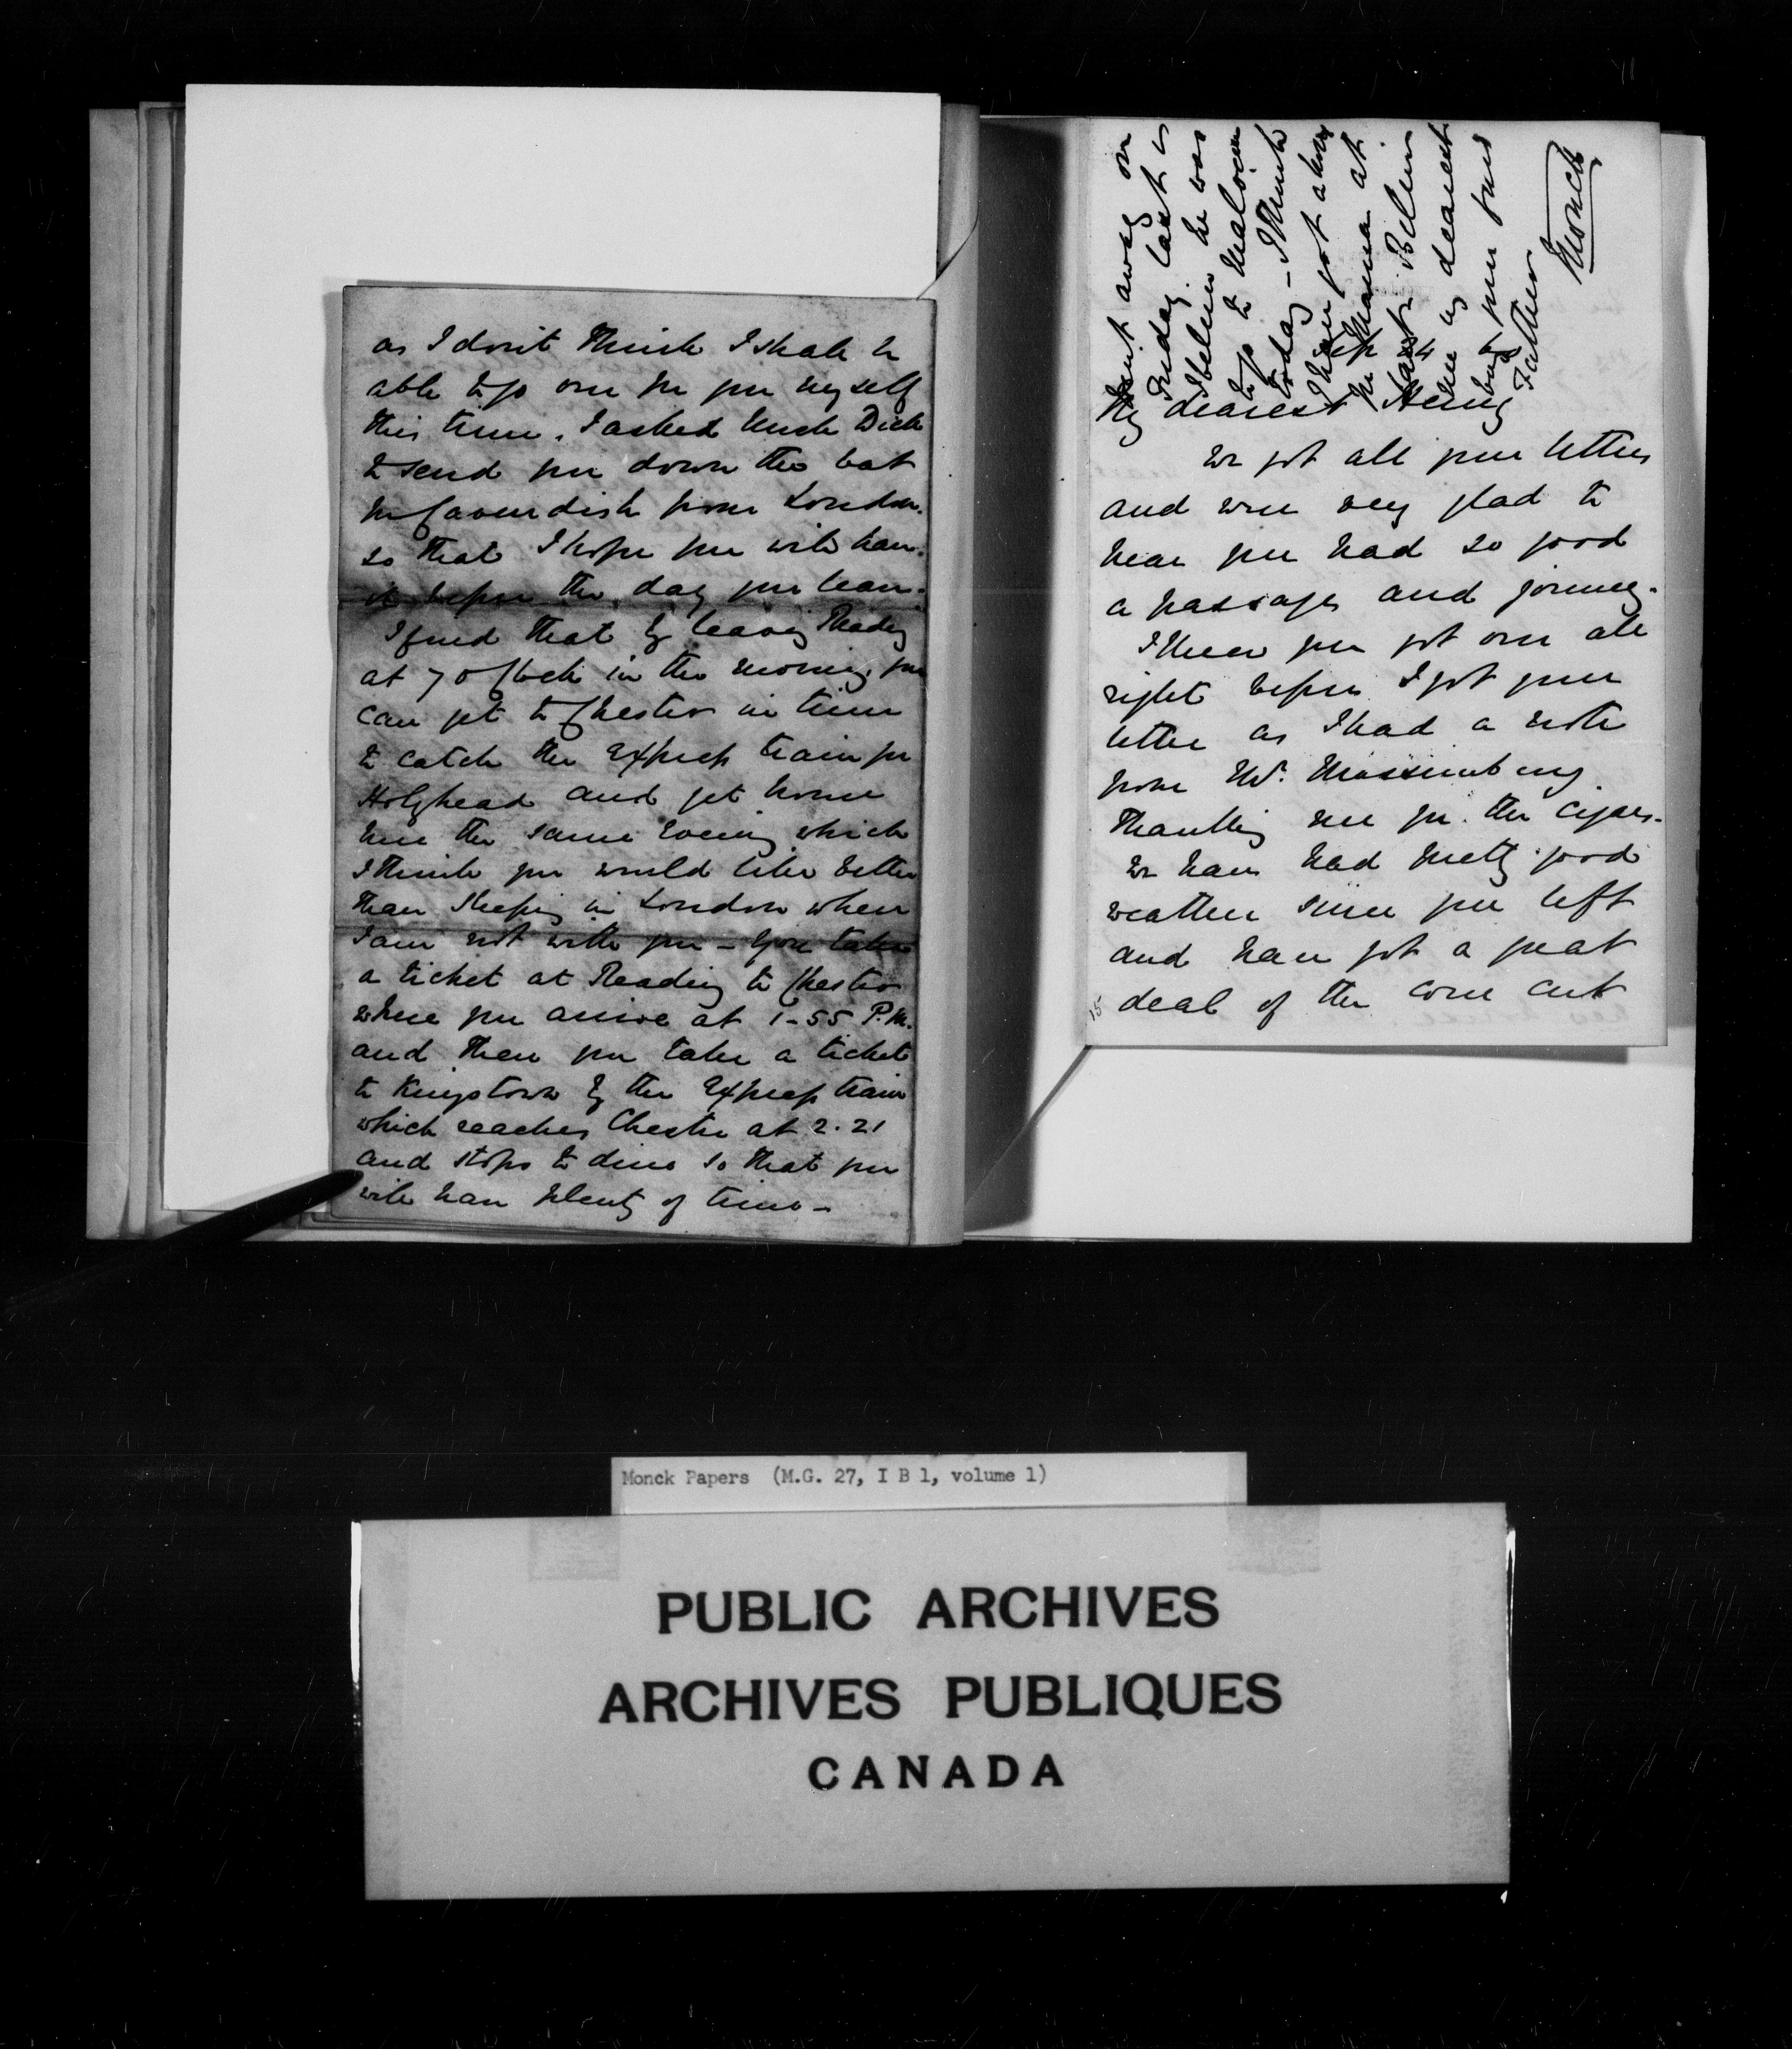 as I don't think I shall be
able to go over for you myself
this time. I asked Uncle Dick
to send you down the hat
for Cavendish from London.
so that I hope you will have
it before the day you leave.
I find that by leaving Reading
at 7 o'Clock in the morning you
can get to Chester in time
to catch the Express train for
Holyhead and get home
here the same evening which
I think you would like better
than sleeping in London when
I am not with you - You take
a ticket at Reading to Chester
where you arrive at 1-55 P.M.
and then you take a ticket
to Kingstown by the Express train
which reaches Chester at 2.21
and stops to dine so that you
will have plenty of time -
went away on
Friday last &
I believe he was
to go to
today - I think
I have got a horse
for Mamma at
last. Believe
me my dearest
boy your fond
Father
Monck
My dearest Henry
We got all your letters
and were very glad to
hear you had so good
a passage and journey.
I knew you got over all
right before I got your
letter as I had a note
from Mr. Massingberg
thanking me for the cigars.
We have had pretty good
weather since you left
and have got a great
deal of the corn cut
15
Monck Papers (M.G. 27, I B 1, volume 1)
PUBLIC ARCHIVES
ARCHIVES PUBLIQUES
CANADA